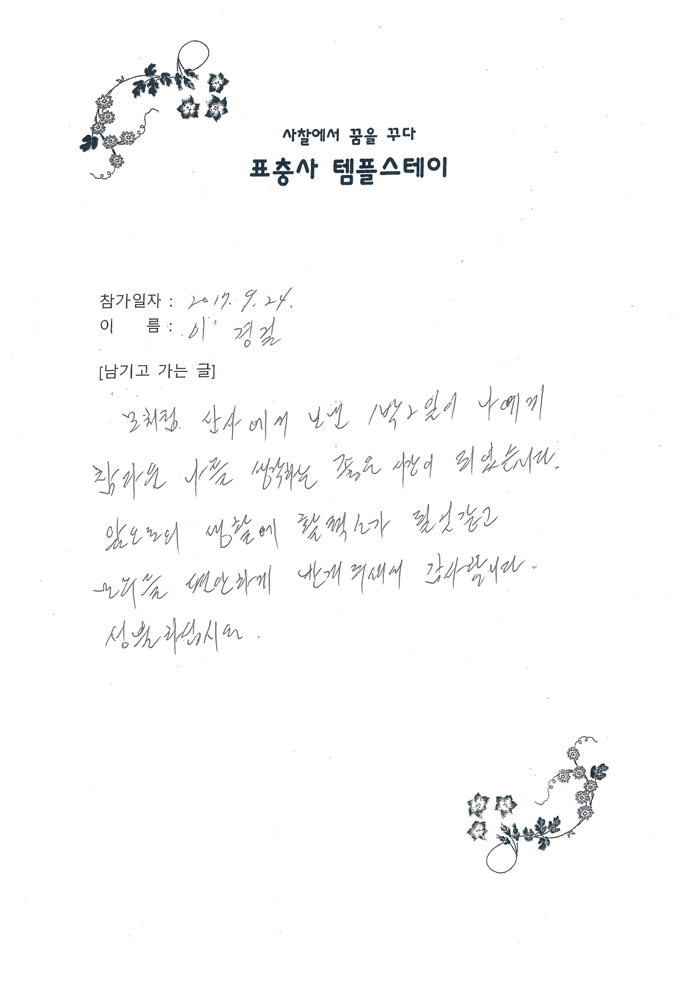 사찰에서 꿈을 꾸다
표충사 템플스테이
참가일자 : 2017. 9. 24.
이 름 : 이 경길
[남기고 가는 글]
모처럼 산사에서 보낸 1박2일이 나에게
참다운 나를 생각하는 좋은 시간이 되었습니다.
앞으로의 생활에 활력소가 될것같고
모두들 편안하게 반겨주셔서 감사합니다.
성불하십시요.